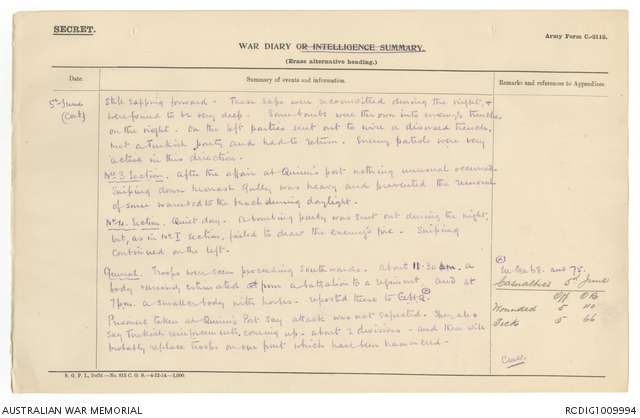 SECRET.
Army Form C.-2118.
WAR DIARY OR INTELLIGENCE SUMMARY.
(Erase alternative heading.)
Date
Summary of events and information.
Remarks and references to Appendices.
5th June
(Cont)
Still sapping forward. These saps were reconnoitred during the night, &
were found to be very deep. Some bombs were thrown into enemy's trenches
on the right. On the left parties sent out to wire a disused trench,
met a Turkish party and had to return. Enemy patrols were very
active in this direction.
No 3 Section. After the affair at Quinn's post nothing unusual occurred.
Sniping down Monash Gulley was heavy and prevented the removal
of some wounded to the beach during daylight.
No 4 Section. Quiet day. A bombing party was sent out during the night,
but, as in No I section, failed to draw the enemy's fire. Sniping
continued on the left.
General. Troops were seen proceeding Southwards. About 11.30 am. a
body estimated from a battalion to a regiment and at
7pm. a smaller body with horses. reported these to
Prisoners taken at Quinn's Post say attack was not expected. They also
say Turkish reinforcements coming up. about 2 divisions - and these will
probably replace troops on our front which have been hammered.
68. and 75.
Casualties 5th June
Off OR
Wounded 5 110
Sick 5 66
S. G. P. I., Delhi—No. 815 C. G. S.—4-12-14—1,000.
AUSTRALIAN WAR MEMORIAL
RCDIG1009994